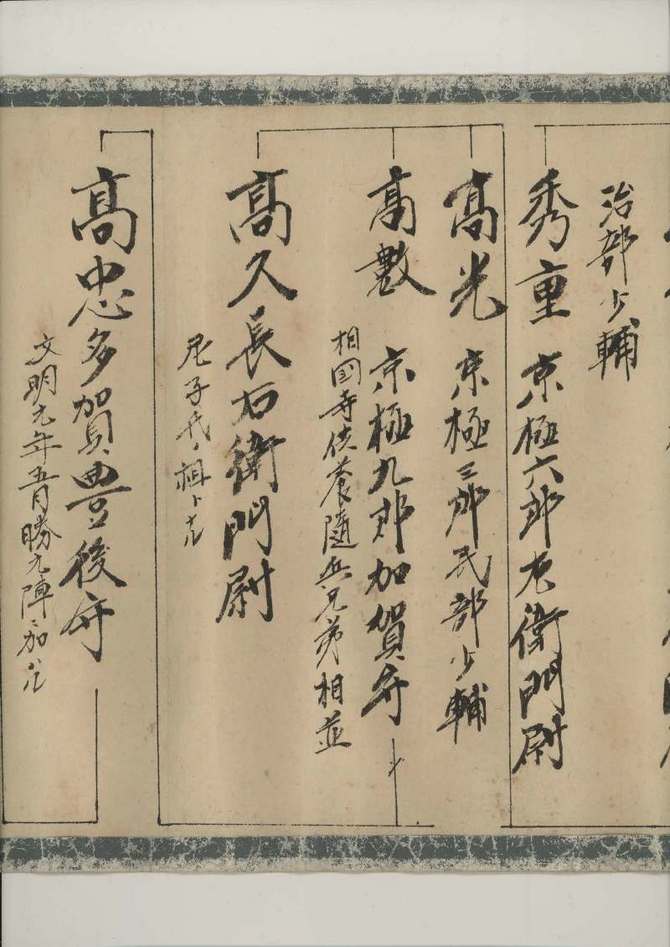 治部少輔
秀重 京極六郎左衛門尉
高光 京極三郎民部少輔
高數 京極九郎加賀守
相國寺供養随兵兄弟相並
高久 長右衛門尉
尼子氏ノ祖トナル
高忠 多賀豊後守
文明元年五月勝元陣ニ加ハル